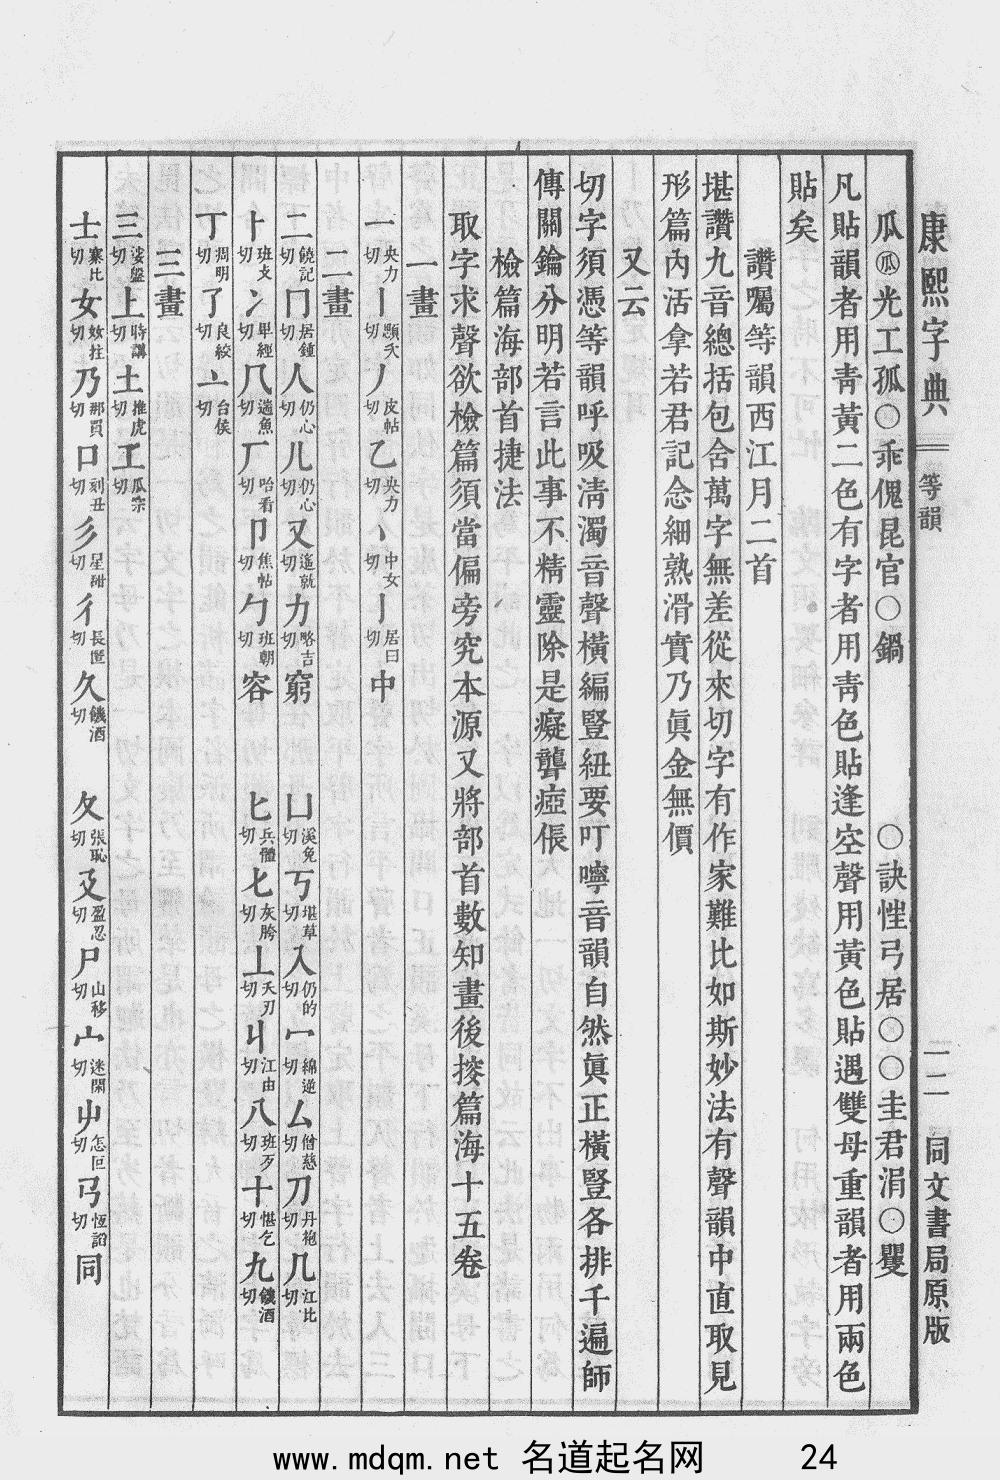 康熙字典 等韻 一二 同文書局原版
瓜㊊光工孤〇乖傀昆官〇鍋 〇訣性弓居〇〇圭君涓〇矍
凡貼韻者用靑黃二色有字者用靑色貼逢空聲用黃色貼遇雙母重韻者用兩色
貼矣
讚囑等韻西江月二首
堪讚九音總括包含萬字無差從來切字有作家難比如斯妙法有聲韻中直取見
形篇內活拿若君記念細熟滑實乃眞金無價
又云
切字須憑等韻呼吸淸濁音聲橫編豎紐要叮嚀音韻自然眞正橫豎各排千遍師
傳關鑰分明若言此事不精靈除是癡聾瘂倀
檢篇海部首捷法
取字求聲欲檢篇須當偏旁究本源又將部首數知畫後按篇海十五卷
一畫
一央力切丨顋天切丿皮帖切乙央力切丶中女切亅居曰切中
二畫
二饒記切冂居鍾切人仍心切儿仍心切又遙就切力略吉切窮 凵溪免切丂堪草切入仍的切冖綿逆切厶僧慈切刀丹袍切几江比切
十班攴切冫畢經切凢逾魚切厂哈看切卩焦帖切勹班朝切容 匕兵體切匕灰胯切丄天刃切丩江由切八班歹切十堪乞切九饑酒切
丁凋明切了良絞切亠台侯切
三畫
三娑盤切上時講切土推虎切工瓜宗切
士寨比切女妝拄切乃那買切口刻丑切彡星酣切彳長匿切久饑酒切 夂張恥切夊盈忍切尸山移切宀迷閑切屮怎回切弓恆詒切同
www.mdqm.net 名道起名网 24